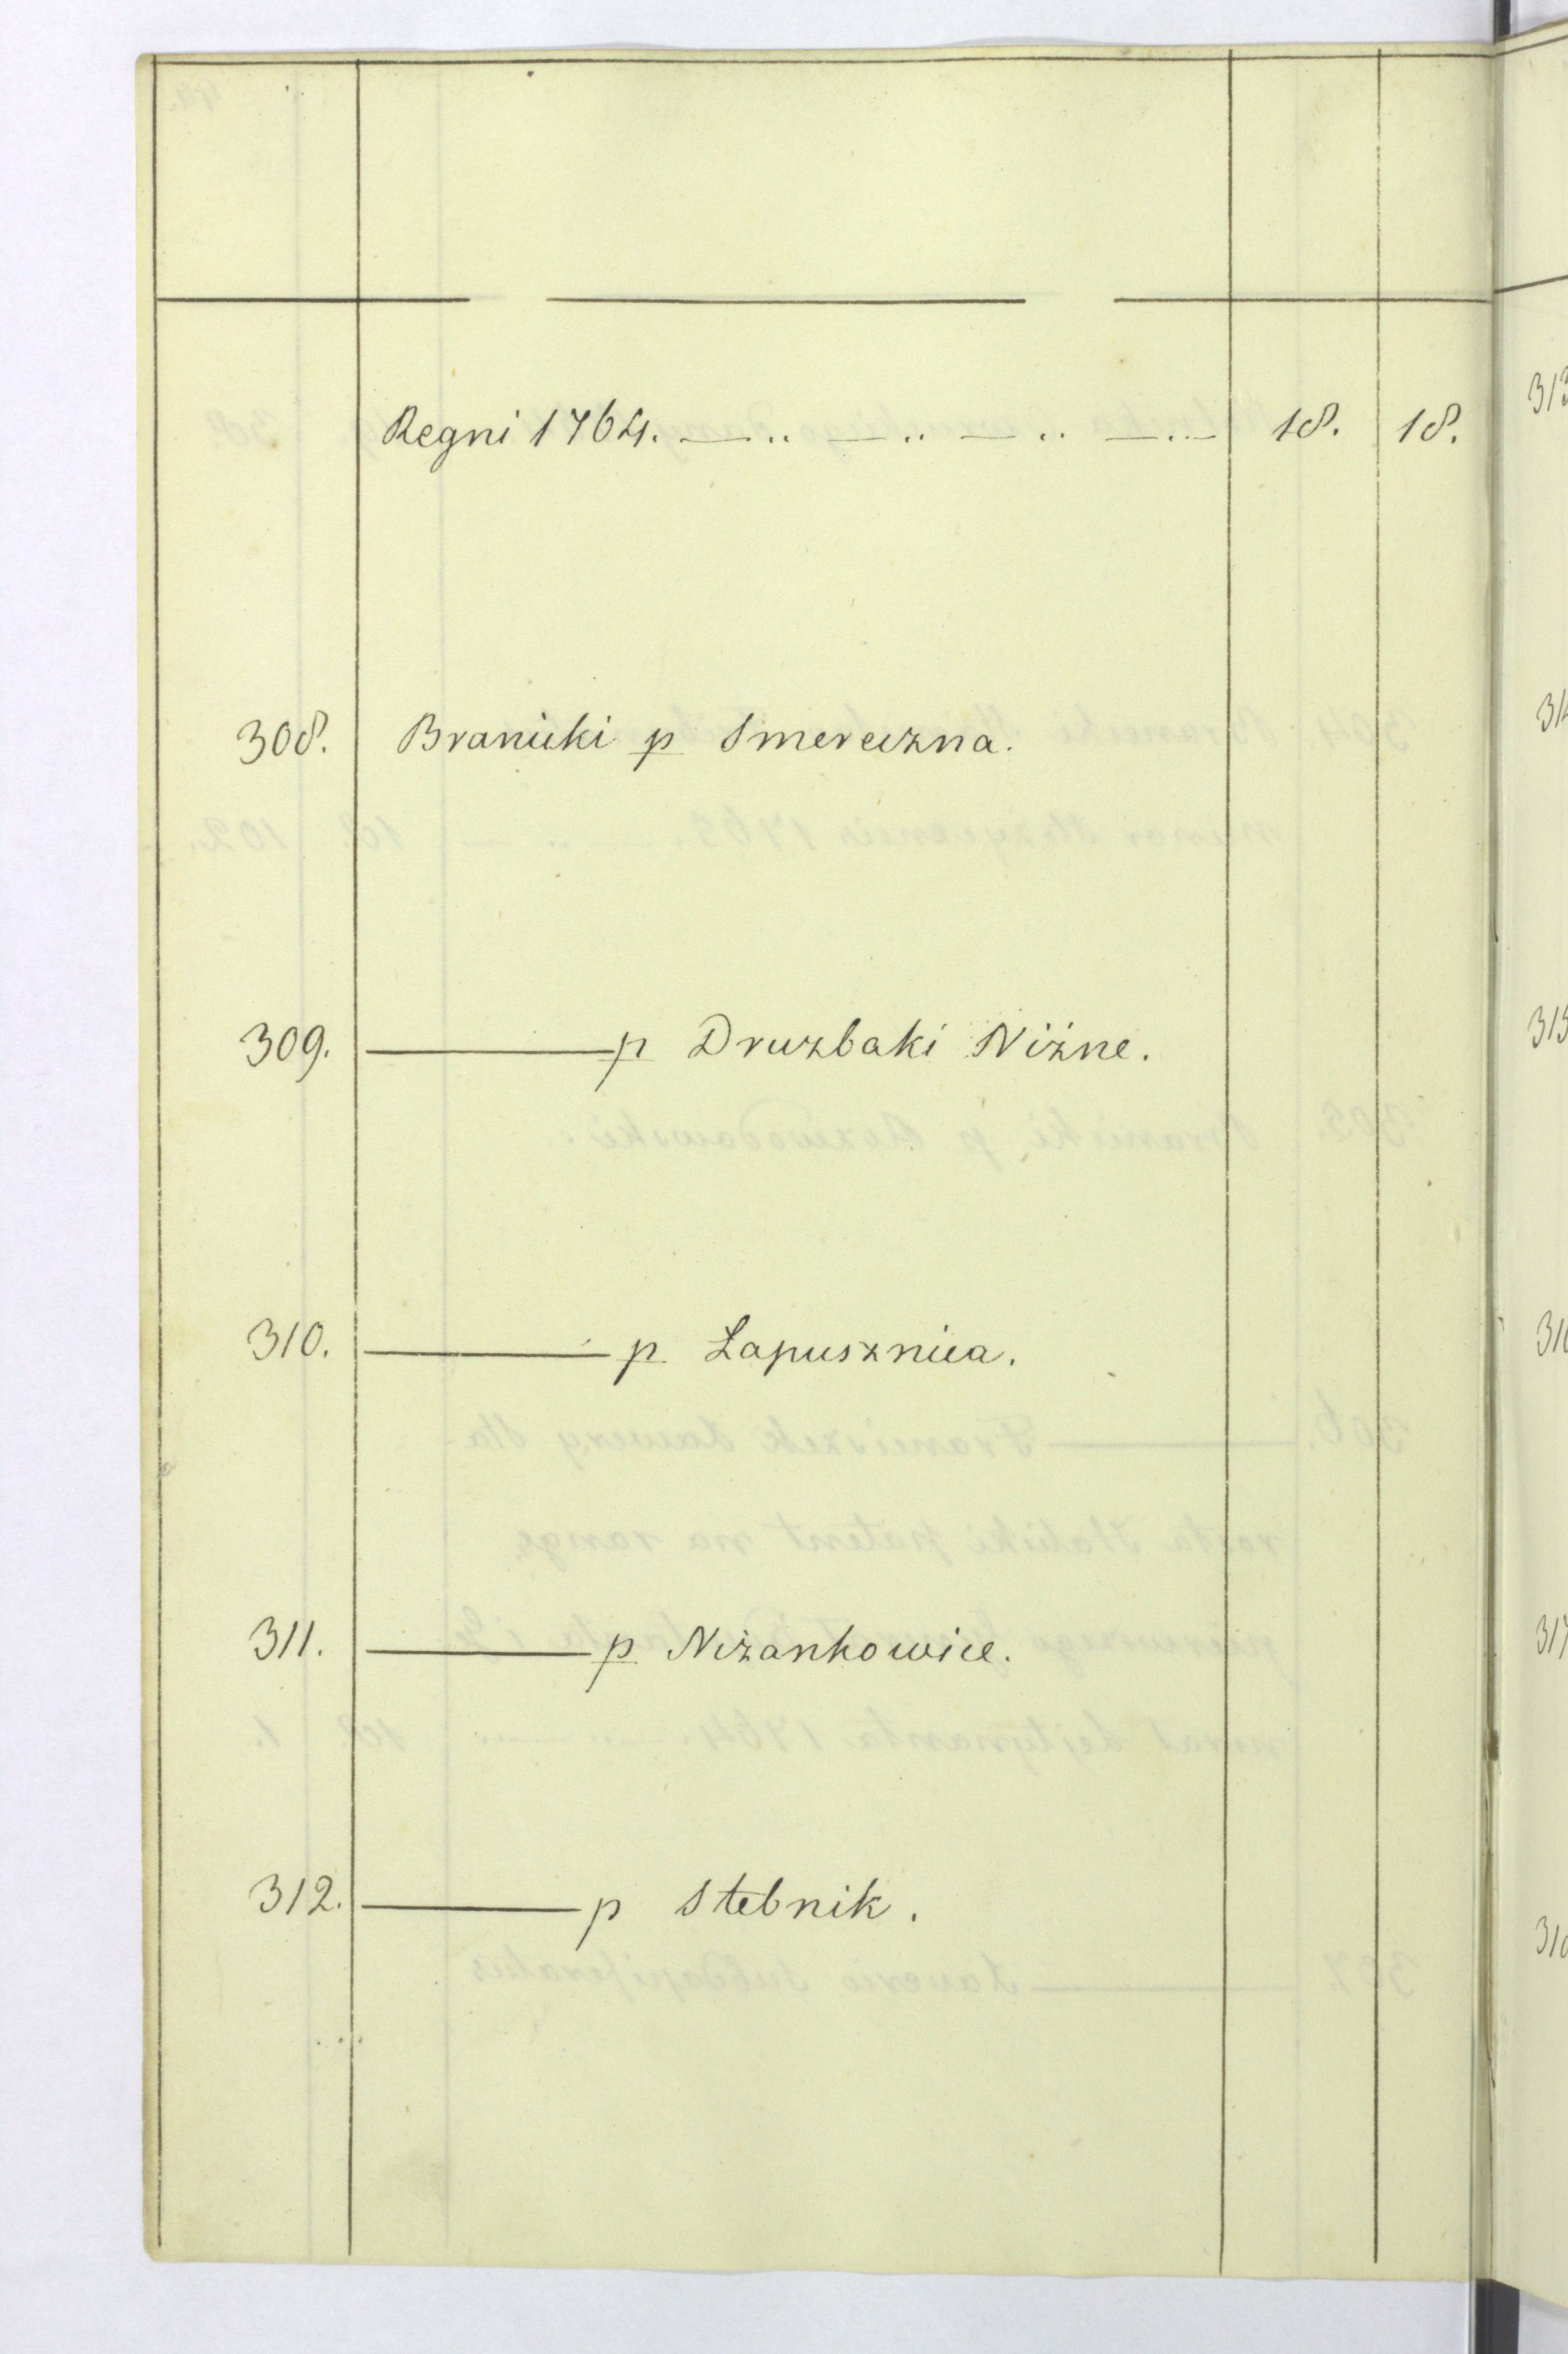 Regni 1764. — .. — .. — .. — ... 18. 18.
308. Branicki p Smereczna.
309. ——— p Druzbaki Niżne.
310. ——— p Łapusznica.
311. ——— p Niżankowice.
312. ——— p Stebnik.